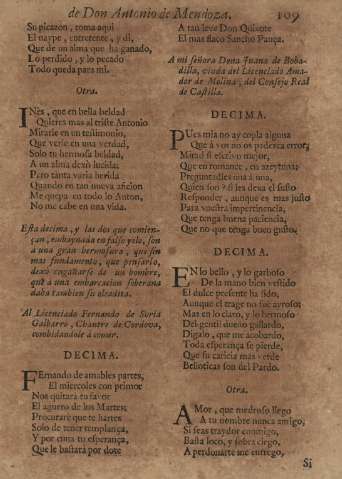 de Don Antonio de Mendoza. 109
Su picazon, toma aqui
El naype, entretente, y di,
Que de un alma que ha ganado,
Lo perdido, y lo pecado
Todo queda para mi.
Otra.
INès, que en bella beldad
Quieres mas al triste Antonio
Mirarle en un testimonio,
Que verle en una verdad,
Solo tu hermosa beldad,
A un alma dexò lucida:
Para tanta varia herida
Quando en tan nueva aficion
Me quepa en todo lo Anton,
No me cabe en una vida.
Esta decima, y las dos que comien-
çan, embaynada en falso yelo, son
à una gran hermosura, que sin
mas fundamento, que pensarlo,
dexò engañarse de un hombre,
que à una embarcacion soberana
daba tambien su
Al Licenciado Fernando de Soria
Galbarro, Chantre de Cordova,
combidandole à comer.
DECIMA.
FErnando de amables partes,
El miercoles con primor
Nos quitara tu favor
El aguero de los Martes:
Procurarè que te hartes
Solo de tener templança,
Y por cinta tu esperança,
Que le bastarà por dote
A tan leve Don Quixote
El mas flaco Sancho Pança.
A mi señora Doña Juana de Boba-
dilla, viuda del Licenciado Ama-
dor de Molina, del Consejo Real
de Castilla.
DECIMA.
PUes mia no ay copla alguna
Que à vos no os parezca error,
Mirad si es tivo mayor,
Que en romance, en
Preguntadles una à una,
Quien son? si les dexa el susto
Responder, aunque es mas justo
Para vuestra impertinencia,
Que tenga buena paciencia,
Que no que tenga buen gusto.
DECIMA.
EN lo bello, y lo garboso
De la mano bien vestido
El dulce presente ha sido,
Aunque el trage no fue ayroso:
Mas en lo claro, y lo hermoso
Del gentil dueño gallardo,
Digalo, que me acobardo,
Toda esperança se pierde,
Que su caricia mas verde
Belloticas son del Pardo.
Otra.
AMor, que medroso llego
A tu nombre nunca amigo,
Si seas traydor conmigo,
Basta loco, y sobra ciego,
A perdonarte me entrego,
Si